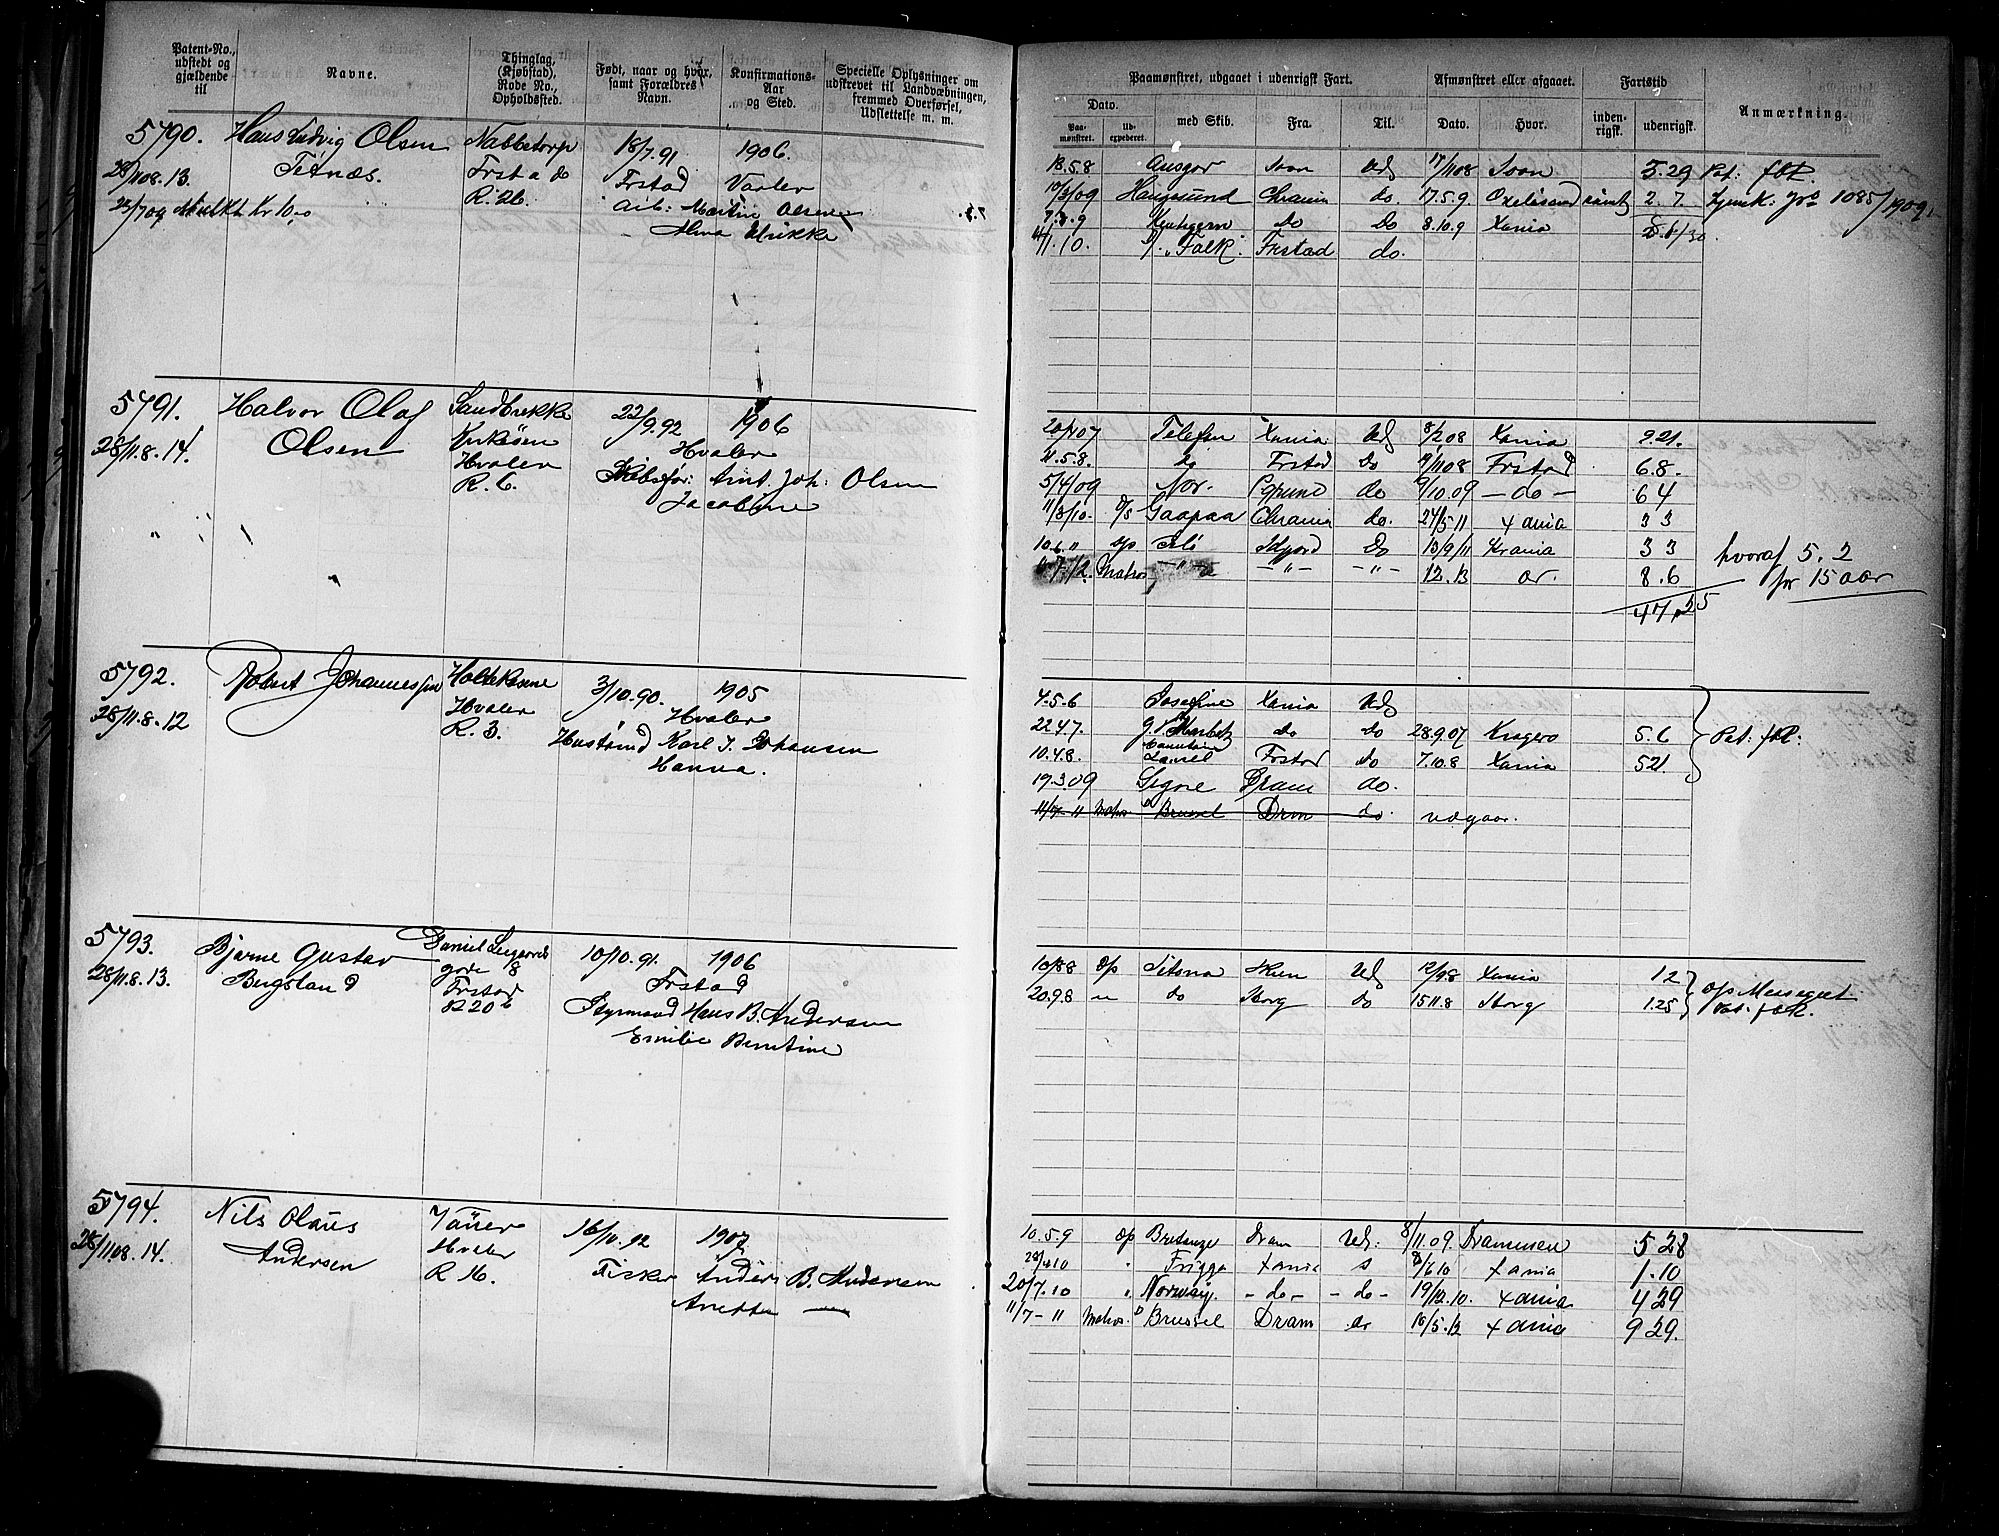 Patent-No., udstedt og gjældende til
Navne.
Thinglag, (Kjøbstad), Rode No., Opholdssted.
Født, naar og hvor, samt Forældres Navn.
Konfirmations-Aar og Sted.
Specielle Oplysninger om udskrevet til Landvæbningen, fremmed Overførsel, Udslettelse m. m.
5790. Hans Ludvig Olsen Nabbetorp 18/7.91 1906.
28/1108.13. Tetnæs. Frstad Frstad Varlev
23/7 09 Mulkt Kr 10,0 R. 26. Arb: Martin Olsen
Alma Ulrikke
5791. Halvor Olaf Sandbrekke 22/9.92 1906
28/11.8.14. Olsen Kirkøen Hvaler
Hvaler Skibsfør: Arnt Joh: Olsen
R. 6. Jacobine
5792. Robert Johannessen Holtekasene 3/10.90. 1905
28/11.8.12 Hvaler Hvaler
R. 3. Karl J. Johansen
Hanna.
5793. Bjarne Gustav Daniel 10/10.91. 1906
28/11.8.13. Bugsland gade 8 Frstad
Frstad Styrmand Hans B. Andersen
R 20 b Emilie Berntine
5794. Nils Olaus 16/10.92 1907
28/1108.14. Andersen Hvaler Fisker Anders B. Andersen
R 16. Anette
Paamønstret, udgaaet i udenrigsk Fart.
Afmønstret eller afgaaet.
Fartstid
Anmærkning.
Dato.
Paa-mønstret. Ud-expederet. med Skib. Fra. Til. Dato. Hvor. inden-rigsk. udenrigsk.
18.5.8 Ansgar Soon Uds 17/1108 Soon 5.29 Pat: fot
Haugesund Chrania do. 17.5.9 2. 7. 1085/1909.
7.3.9 Kentigern Do Do 8.10.9 Xania
11/1.10. "Falk". Frstad do.
Telefon Xania Uds 8/2 08 Xania 9.21.
11.5.8. do Frstad Do 19/1108 Frstad 6.8.
5/4/09 Nor. do 9/10.09 - do - 6 4
11/8/10. D/S Gaapaa Chrania do. 24/5 11 Xania 3 3
10.6.11 Do 10/9/11 Krania 3 3 hvoraf 5. 2
Matros - " - - " - 12.13 8.6 for 15 aar
47.25
4.5.6 Josefine Xania Uds
22.4.7. do do 28.9.07 Kragerø 5.6 Pat: fot:
10.4.8. Frstad do 7.10.8 Xania 5 21.
19.3.09 Signe Dram do.
11/7-11 Matros Brussel Drm do udgaar.
Skien Uds 12/9.8 Xania 1 2
20.9.8 do do 15 11.8 1.25
10.5.9 Bretange Dram Uds. 8/11.09. Drammen 5 28
Frigga Xania Xania 1.10
20/7.10 Norway. - do - - do - 19/12.10. Xania 4 29
11/7-11 Matros. Brussel Dram do Xania 9 29.